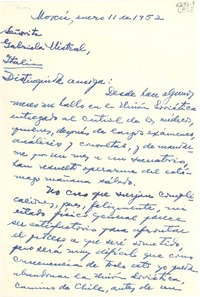 Moscú, enero 11 de 1952
Señorita
Gabriela Mistral,
Italia
Distinguida amiga:
Desde hace algunos
meses me hallo en la Unión Soviética
entregado al cuidado de los médicos,
quienes, después de largos exámenes,
análisis y consultas, y de mandar
me por un mes a un sanatorio,
han resuelto operarme del estó-
mago mañana sábado.
No creo que surjan compli
caciones, pues, felizmente, mi
estado físico general parece
ser satisfactorio para afrontar
el proceso a que seré sometido
pero será muy difícil que como
consecuencia de todo esto yo pueda
abandonar la Unión Soviética
camino de Chile, antes de un